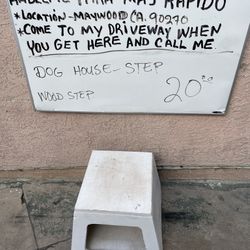 PARA MAS RAPIDO
*LOCATION-MAYWOOD CA. 90270
*COME TO MY DRIVEWAY WHEN
YOU GET HERE AND CALL ME.
DOG HOUSE-STEP
20.00
WOOD STEP